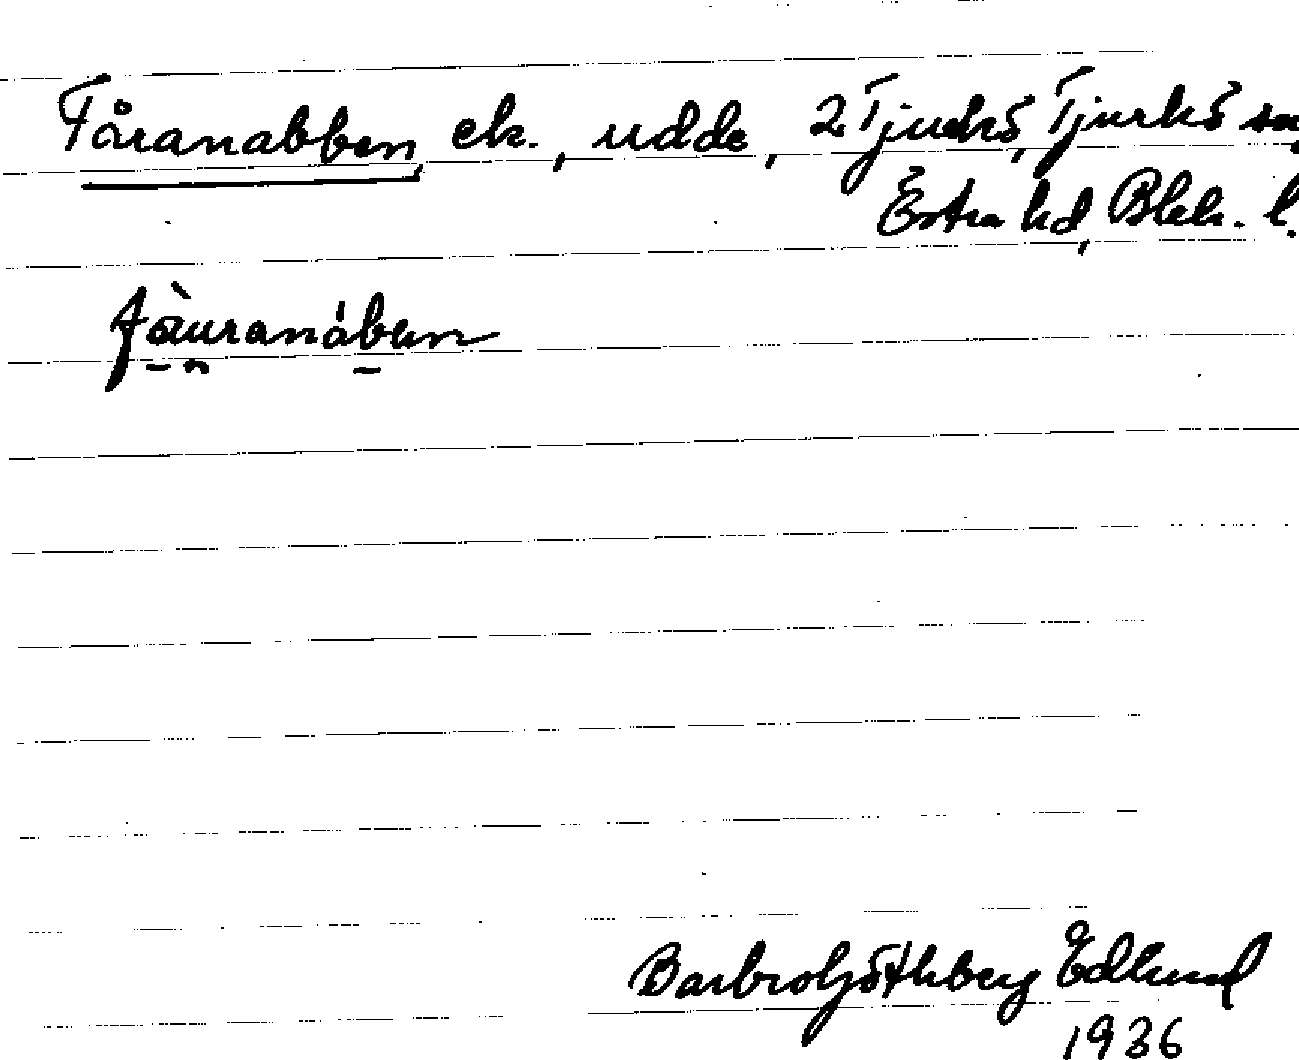 Fåranabben, ek., udde, 2 Tjurkö, Tjurkö sn,
Östra hd, Blek. l.
fàuranáben
Barbro Göthberg Edlund
1936